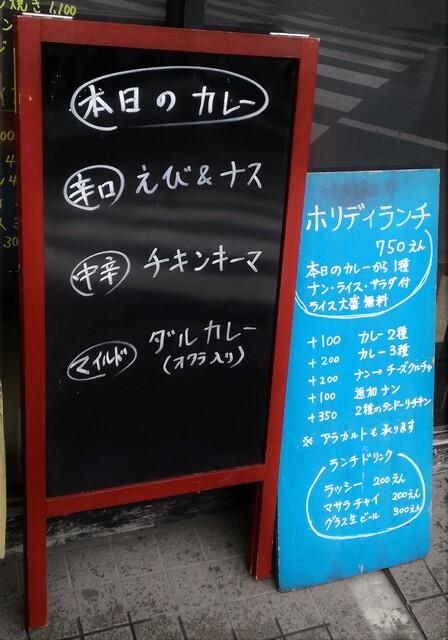 焼き 1,100
本日の カレー
辛口 えび&ナス
中辛 チキンキーマ
マイルド ダルカレー
(オクラ入り)
ホリディランチ
750えん
本日のカレーから1種
ナン・ライス・サラダ付
ライス大盛無料
+100 カレー2種
+200 カレー3種
+200 ナン→チーズクルチャ
+100 追加ナン
+350 2種のタンドーリチキン
※ アラカルトも承ります
ランチドリンク
ラッシー 200えん
マサラチャイ 200えん
グラス生ビール 300えん